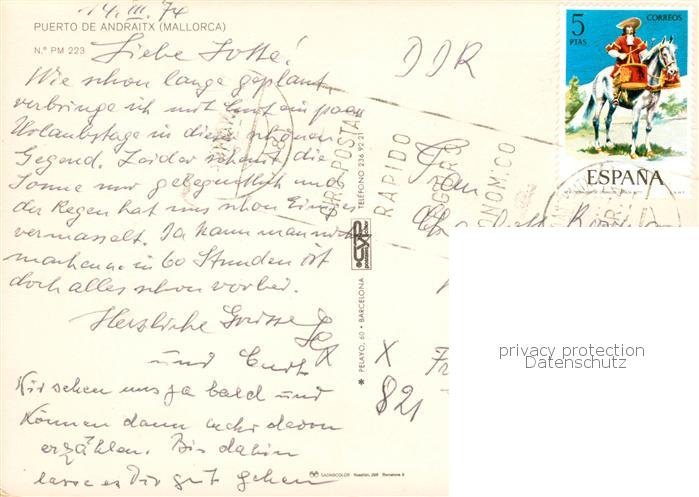 14. III. 74
PUERTO DE ANDRAITX (MALLORCA)
N.º PM 223
Liebe Lotte!
Wie schon lange geplant,
verbringe ich mit Curt ein paar
Urlaubstage in dieser schönen
Gegend. Leider scheint die
Sonne nur gelegentlich und
der Regen hat uns schon Einiges
vermasselt. Da kann man nichts
machen, in 60 Stunden ist
doch alles schon vorbei.
Herzliche Grüsse
und Curt
Wir sehen uns ja bald und
können dann mehr davon
erzählen. Bis dahin
lasse es Dir gut gehen
SADAGCOLOR Rosellón, 298 Barcelona
PELAYO, 60 • BARCELONA TELÉFONO 236 92 21
DDR
POSTAL
RAPIDO
Frau
X
821
5
PTAS
CORREOS
ESPAÑA
privacy protection
Datenschutz